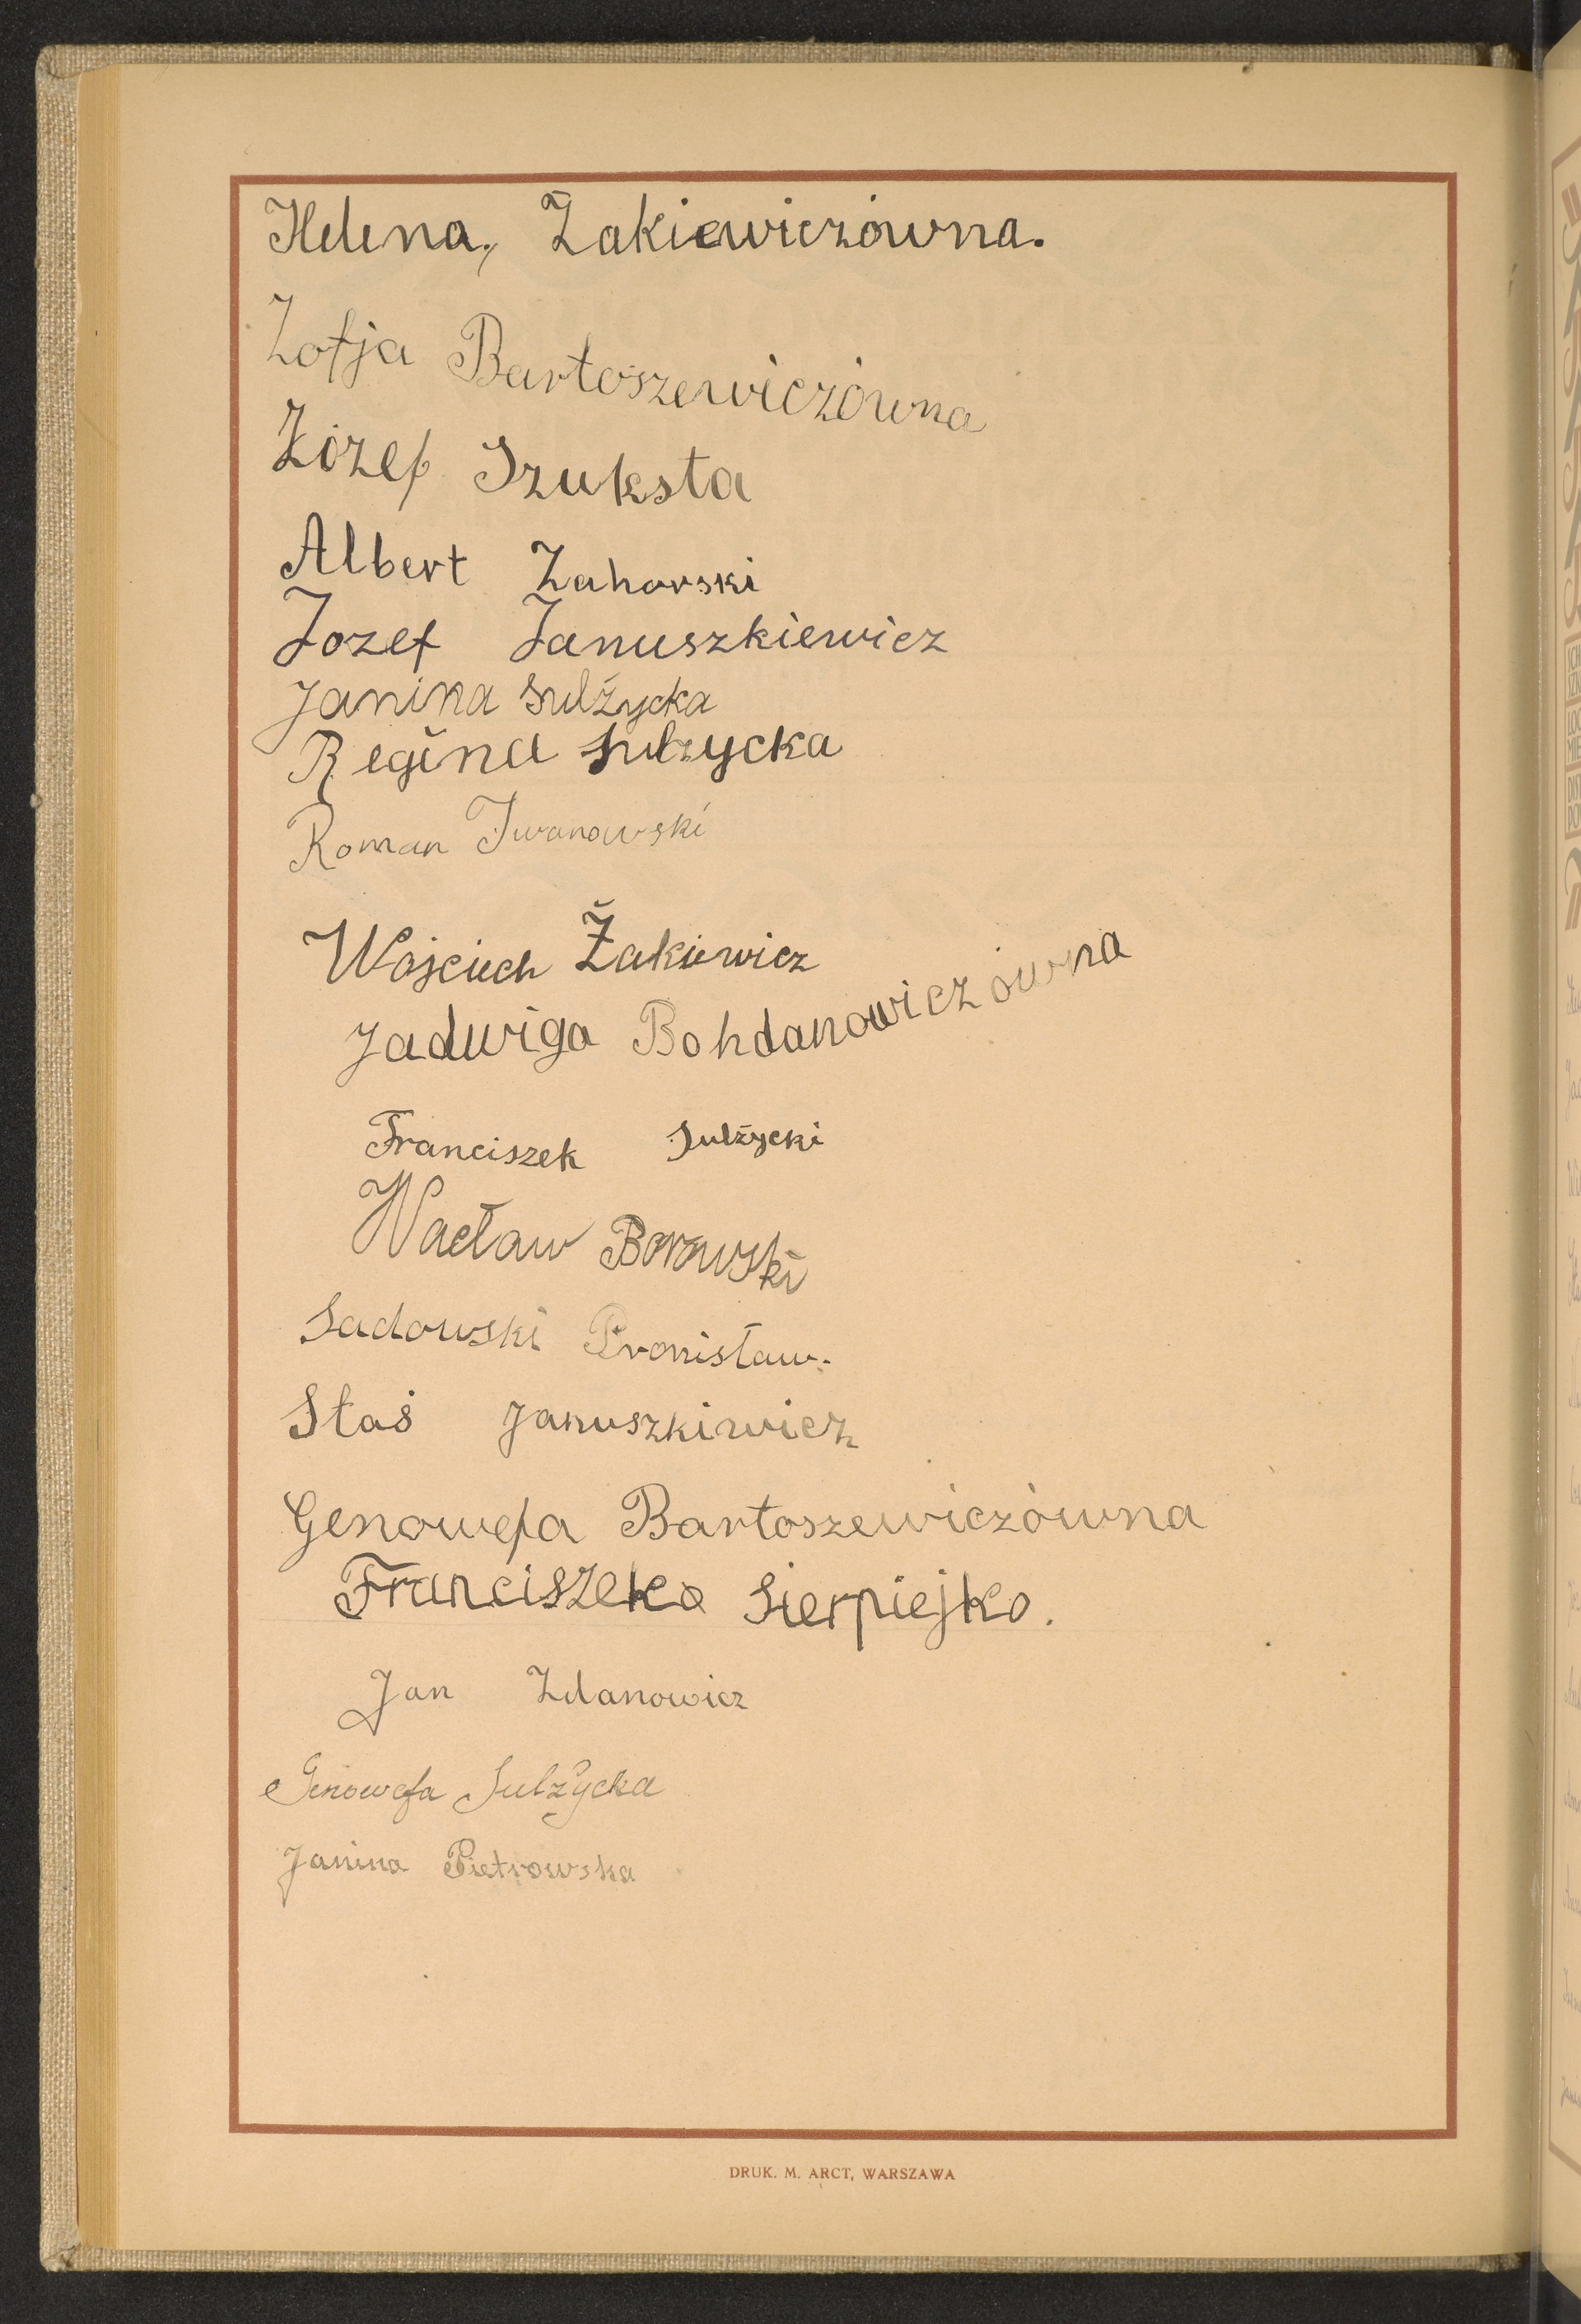 Helena, Żakiewiczówna.
Zofja Bartoszewiczówna
Józef Szuksta
Albert Zahorski
Józef Januszkiewicz
Janina Sulżycka
Regina Sulżycka
Roman Iwanowski
Wojciech Żakiewicz
Jadwiga Bohdanowiczówna
Franciszek Sulżycki
Wacław Borowski
Sadowski Bronisław.
Staś Januszkiwicz
Genowefa Bartoszewiczówna
Franciszek Sierpiejko.
Jan Zdanowicz
Genowefa Sulżycka
Janina Pietrowska
DRUK. M. ARCT, WARSZAWA